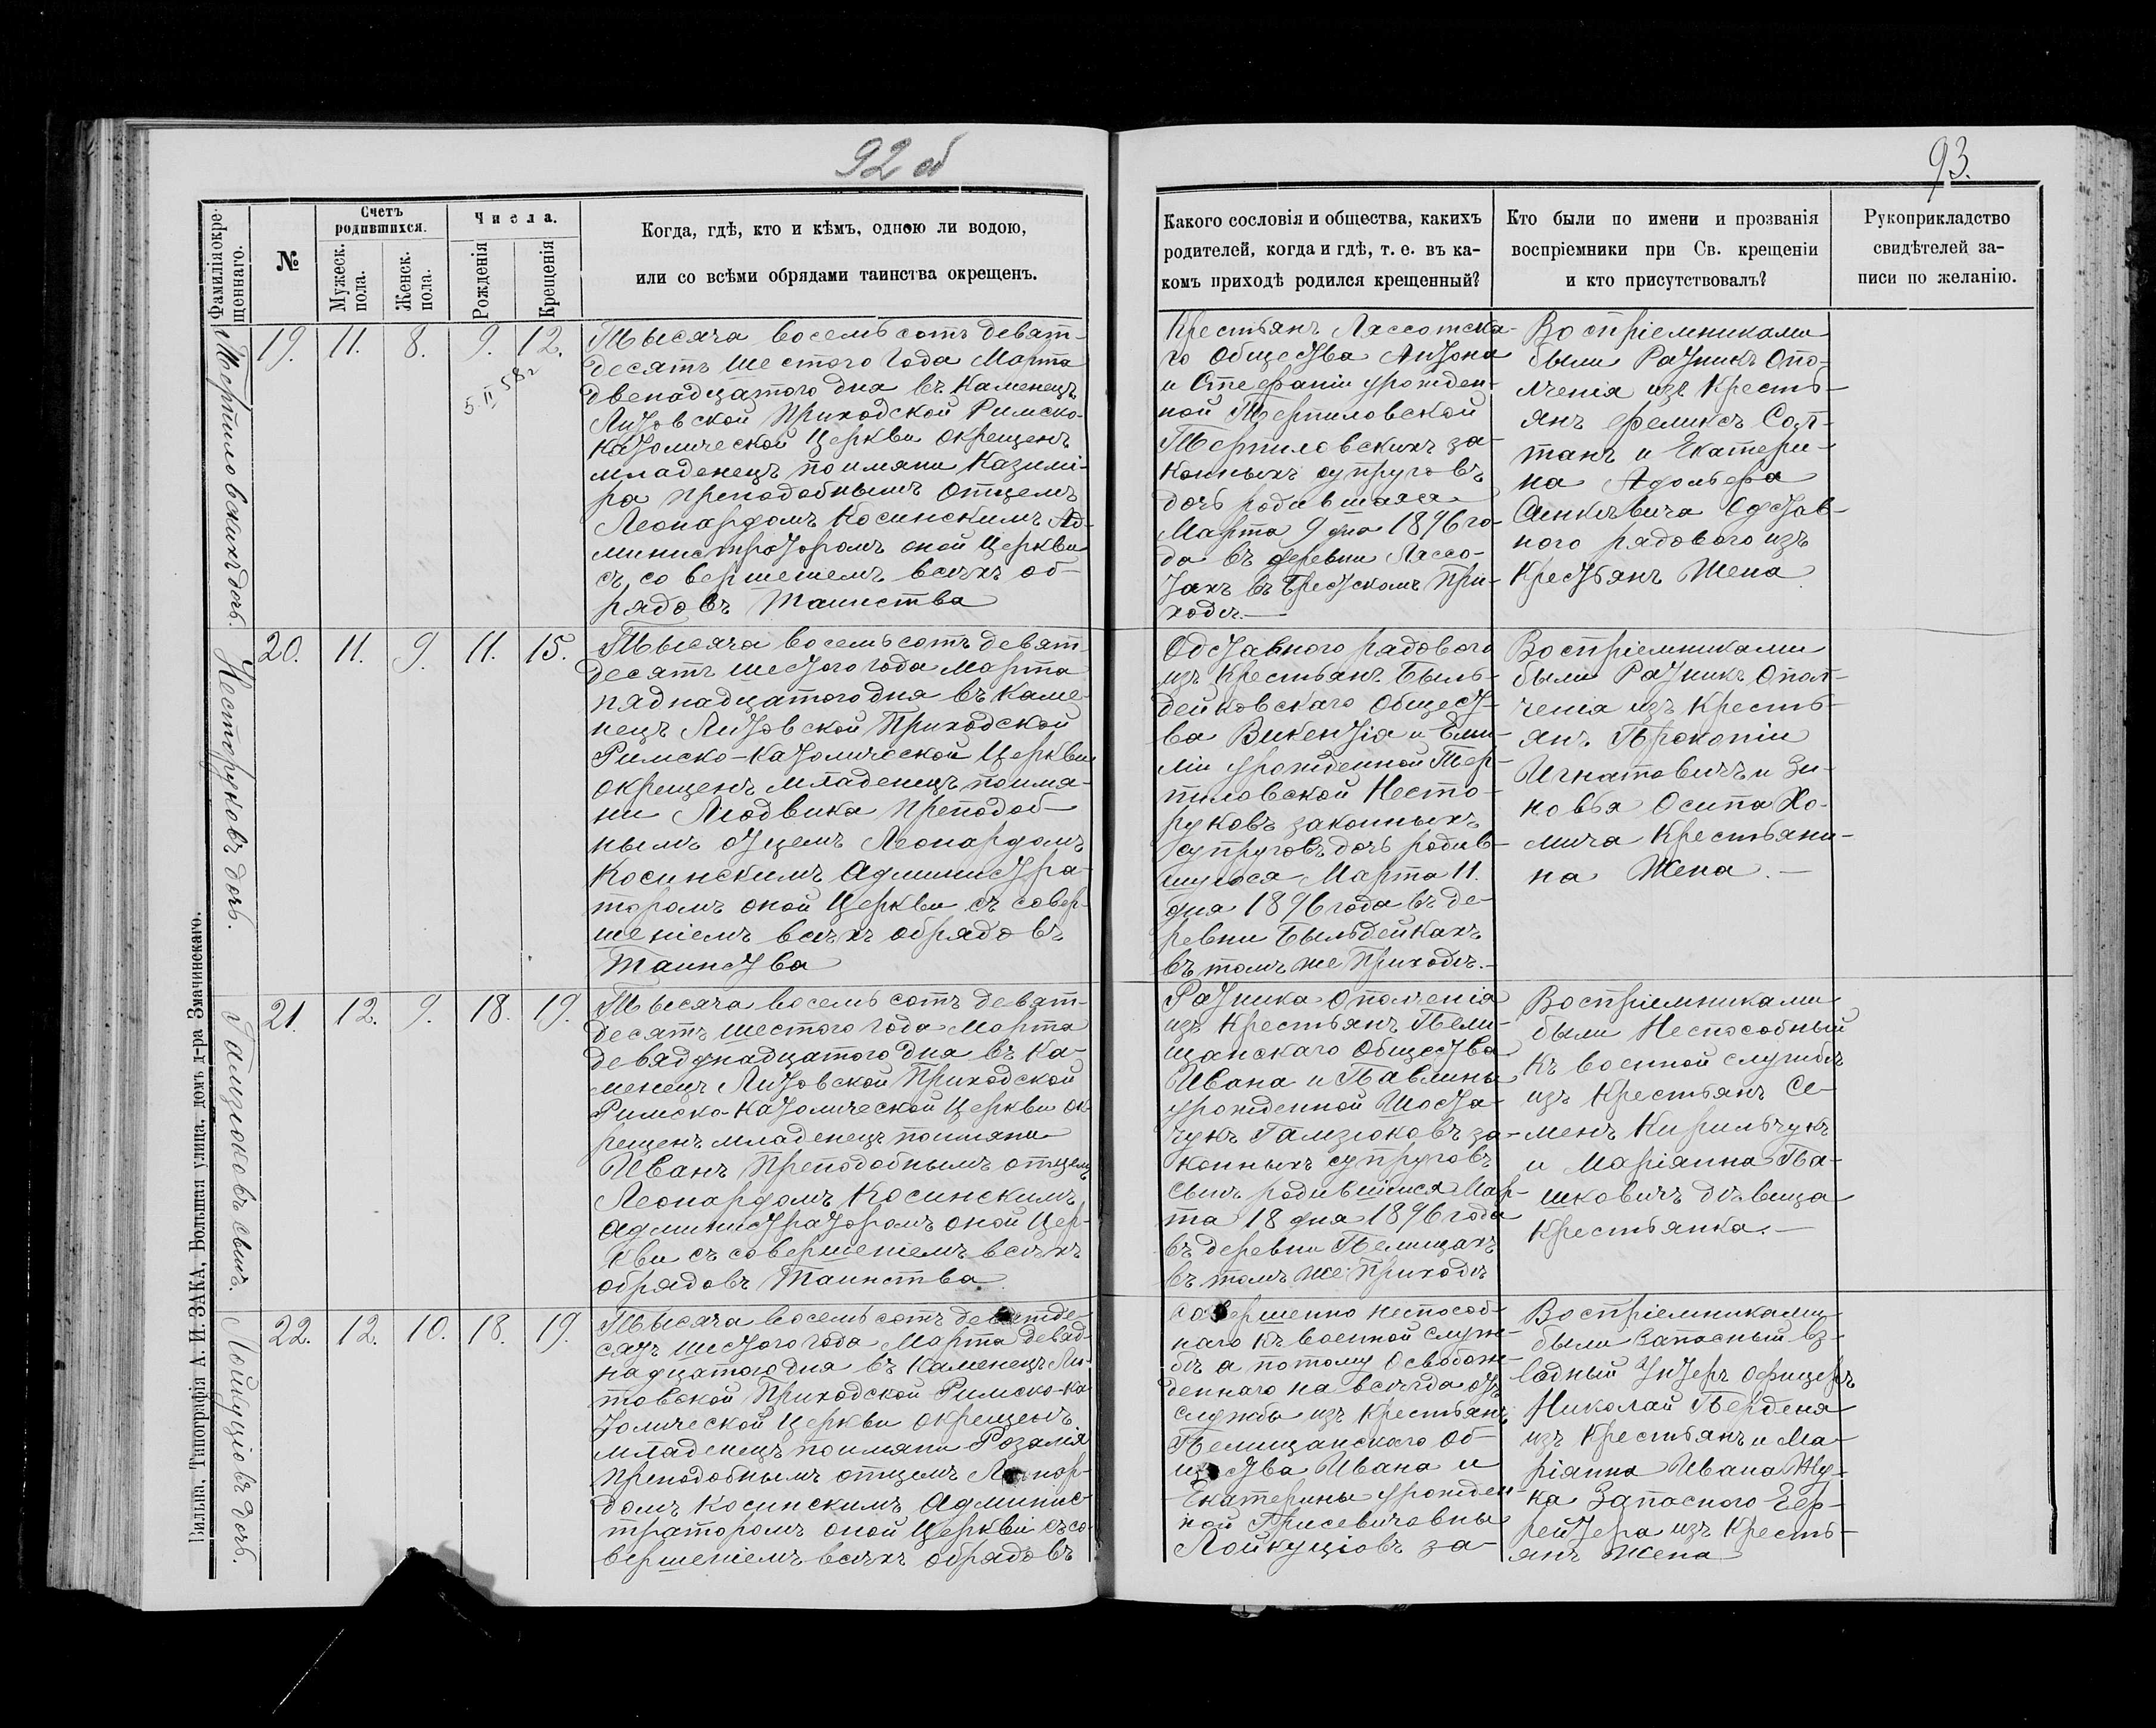 92 об
93.
Фамилія окре-
щеннаго.
№
Счетъ
родившихся.
Мужеск.
пола.
Женск.
пола.
Числа.
Рожденія
Крещенія
Когда, гдѣ, кто и кѣмъ, одною ли водою,
или со всѣми обрядами таинства окрещенъ.
Какого сословія и общества, какихъ
родителей, когда и гдѣ, т. е. въ ка-
комъ приходѣ родился крещенный?
Кто были по имени и прозванія
воспріемники при Св. крещеніи
и кто присутствовалъ?
Рукоприкладство
свидѣтелей за-
писи по желанію.
Терпиловскихъ дочь.
19. 11. 8. 9. 12.
5. II 58 г
Тысяча восемьсотъ девят-
десятъ шестого года Марта
двенадцатого дня въ Каменецъ
Литовской Приходской Римско-
Католической Церкви окрещенъ
младенецъ поимяни Казимі-
ра Преподобнымъ Отцемъ
Леонардомъ Косинскимъ Ад-
министраторомъ оной Церкви
съ совершеніемъ всѣхъ об-
рядовъ Таинства
Крестьянъ Лясcотска-
го Общества Антона
и Стефаніи урожден-
ной Терпиловской
Терпиловскихъ за-
конныхъ супруговъ
дочь родившаяся
Марта 9 дня 1896 го-
да въ деревни Ляссо-
тахъ въ Брестскомъ При-
ходѣ.—
Воспріемниками
были Ратникъ Опо-
лченія изъ Кресть-
янъ Феликсъ Сол-
танъ и Екатери-
на Адольфа
Синкевича Одстав-
ного рядового изъ
Крестьянъ Жена
Несторуковъ дочь.
20. 11. 9. 11. 15.
Тысяча восемьсотъ девят-
десятъ шестого года Марта
пяднадцатого дня въ Каме-
нецъ Литовской Приходской
Римско-Католической Церкви
окрещенъ младенецъ поимя-
ни Людвика Преподоб-
нымъ отцемъ Леонардомъ
Косинскимъ Администра-
торомъ оной Церкви съ совер-
шеніемъ всѣхъ обрядовъ
Таинства
Одставного рядового
изъ Крестьянъ Быль-
дейковскаго Общест-
ва Викентія и Еми-
ліи урожденной Тер-
пиловской Несто-
руковъ законныхъ
супруговъ дочь родив-
шуюся Марта 11.
дня 1896 года въ де-
ревни Быльдейкахъ
въ томъ же Приходѣ.—
Воспріемниками
были Ратникъ Опол-
ченія изъ Кресть-
янъ Прокопій
Игнатовичъ и Зи-
новья Осипа Хо-
мича Крестьяни-
на Жена.—
Гамзюковъ сынъ.
21. 12. 9. 18. 19.
Тысяча восемьсотъ девят-
десятъ шестого года Марта
девяднадцатого дня въ Ка-
менецъ Литовской Приходской
Римско-Католической Церкви ок-
рещенъ младенецъ поимяни
Иванъ Преподобнымъ отцемъ
Леонардомъ Косинскимъ
Администраторомъ оной Цер-
кви съ совершеніемъ всѣхъ
обрядовъ Таинства
Ратника Ополченія
изъ Крестьянъ Пели-
щанскаго Общества
Ивана и Павлины
урожденной Шоста-
чукъ Гамзюковъ за-
конныхъ супруговъ
сынъ родившійся Мар-
та 18 дня 1896 года
въ деревни Пелищахъ
въ томъ же Приходѣ
Воспріемниками
были Неспособный
къ военной службѣ
изъ Крестьянъ Се-
менъ Кирильчукъ
и Маріанна Па-
шковичъ дѣвица
Крестьянка.—
Лойкуціовъ дочь.
22. 12. 10. 18. 19.
Тысяча восемьсотъ девятде-
сятъ шестого года Марта девяд-
надцатого дня въ Каменецъ Ли-
товской Приходской Римско-Ка
толической Церкви окрещенъ
младенецъ поимяни Розалія
Преподобнымъ отцемъ Леонар-
домъ Косинскимъ Админис-
траторомъ оной Церкви съ со-
вершеніемъ всѣхъ обрядовъ
Совершенно неспособ-
наго къ военной служ-
бѣ а потому освобож-
деннаго на всегда отъ
службы изъ Крестьянъ
Пелищанскаго Об-
щества Ивана и
Екатерины урожден
ной Грисевичовны
Лойкуціовъ за-
Воспріемниками
были Запасный вз-
водный Унтеръ Офицеръ
Николай Берденя
изъ Крестьянъ и Ма-
ріанна Ивана Жу-
ка Запасного Еф-
рейтера изъ Кресть-
янъ Жена
Вильна. Типографія А. И. ЗАКА, Большая улица, домъ д-ра Змачинскаго.